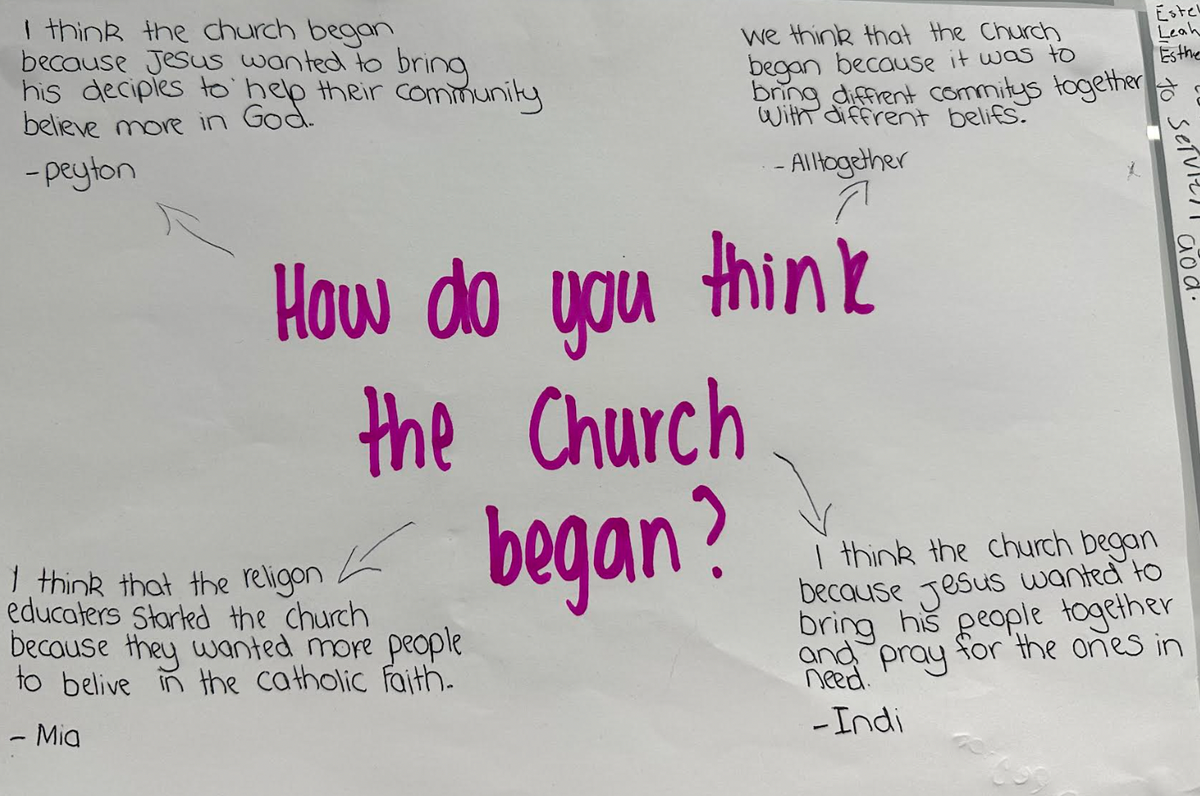 I think the church began
because Jesus wanted to bring
his deciples to help their community
believe more in God.
-peyton
we think that the Church
began because it was to
bring diffrent commitys together
with diffrent belifs.
- Alltogether
How do you think
the Church
began?
I think that the religon
educaters started the church
because they wanted more people
to belive in the catholic Faith.
- Mia
I think the church began
because Jesus wanted to
bring his people together
and pray for the ones in
need.
-Indi
Leah
God.